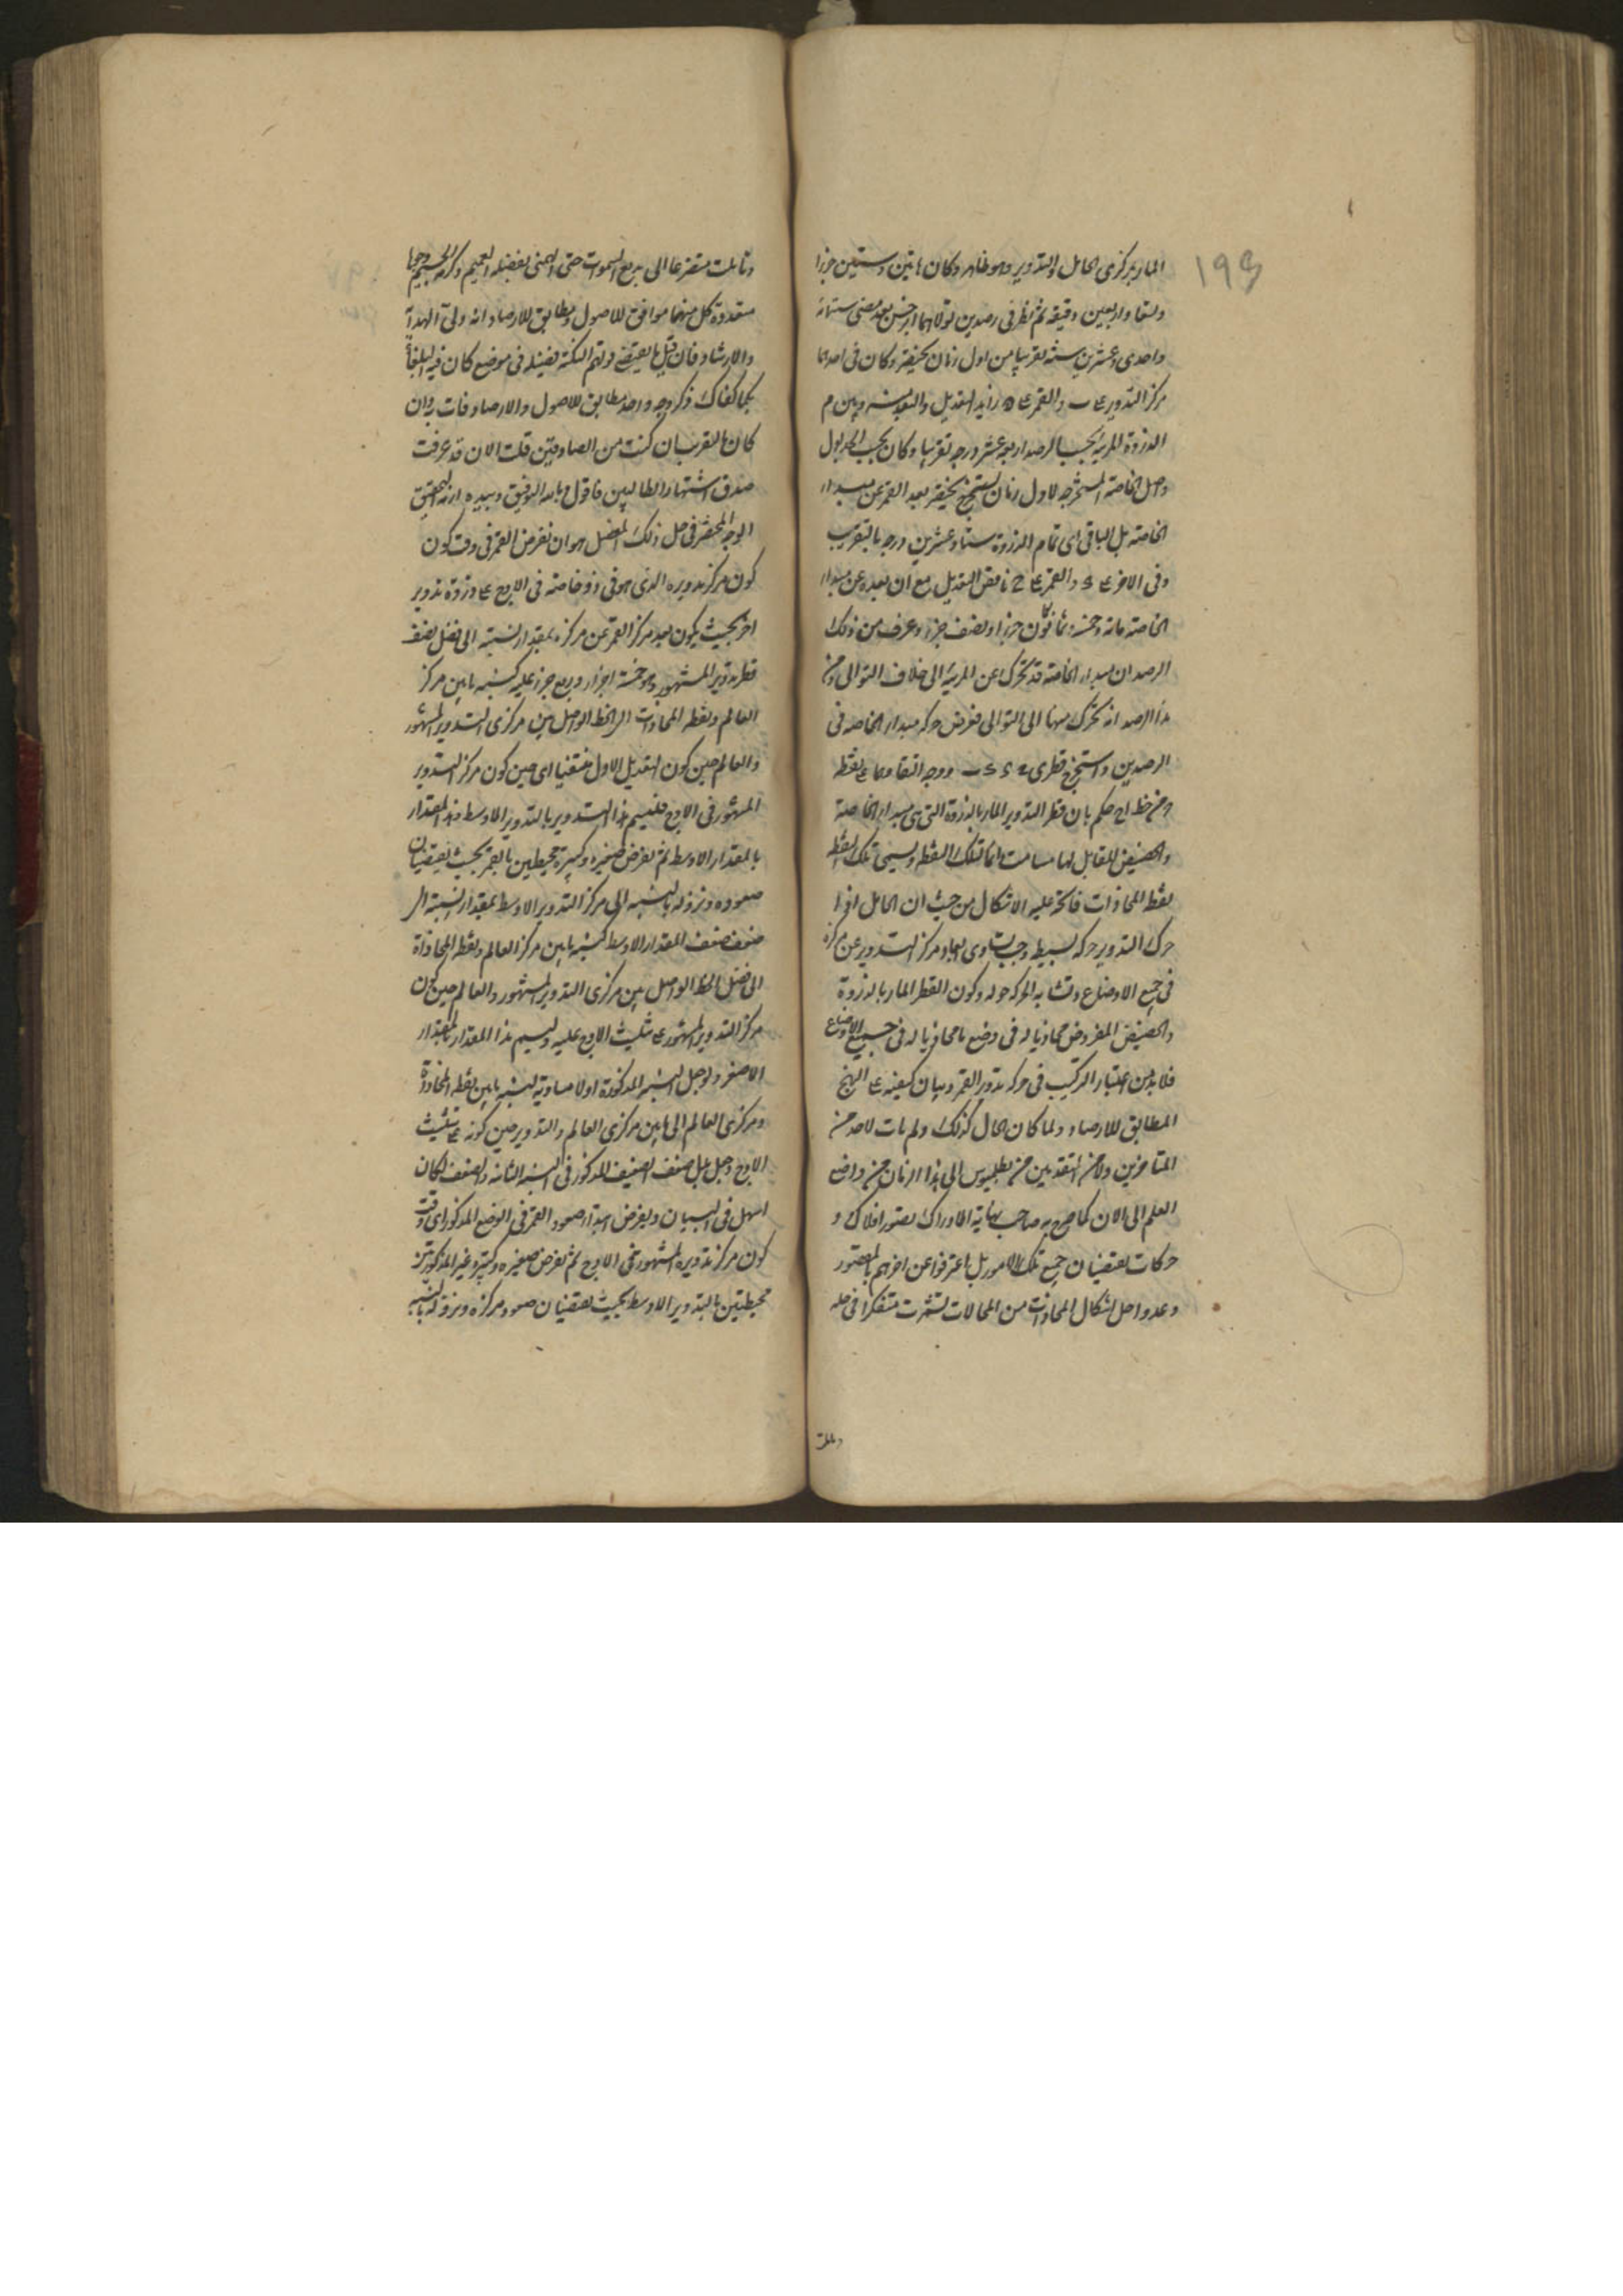 ١٩٩
المار بمركزى الحامل والتدوير وهو ظاهر وكان مائتين وستين جزءا
وتسعا واربعين دقيقه ثم نظر فى رصدين تولاهما ابرخس بعد مضى ستمائه
واحدى وعشرين سنه تقريبا من اول زمان بختنصر وكان فى احدهما
مركز التدوير ع ب والقمر ع ه زايد التعديل والبعد بينه وبين م
الذروة المرئيه بحسب الرصد اربعه عشر درجه تقريبا وكان بحسب الجدول
وصل الخاصة المستخرجه لاول زمان بختنصر بعد القمر عن مبدا
الخاصه بل الباقى اى تمام الدور ستا وعشرين درجه بالتقريب
وفى الاخر ع د والقمر ع ح ناقص التعديل مع ان بعده عن مبدا
الخاصه مائه وخمسه ثمانون جزءا ونصف جزء وعرف من ذلك
الرصد ان مبدا الخاصة قد تحرك عن المرئيه الى خلاف التوالى ومن
هذا الرصد انه تحرك منها الى التوالى ففرض حركه مبدا الخاصه فى
الرصدين واستخرج قطرى ووجد التقاوهما ع نقطه
من خط اح حكم بان قطر التدوير المار بالذروة التى هى مبدا الخاصة
والحضيض المقابل لها مسامت دائما لتلك النقطه ويسمى تلك النقطه
نقطه المحاذات فاتجه عليه الاشكال من حيث ان الحامل اذا
حرك التدوير حركه بسيطه وجب تساوى ابعاد مركز التدوير عن مركزه
فى جميع الاوضاع وتشابه الحركه حوله وكون القطر المار بالذروة
والحضيض المفروض محاذيا له فى وضع ما محاذيا له فى جميع الاوضاع
فلا بد من اعتبار التركيب فى حركه تدوير القمر وبيان كيفيته ع النهج
المطابق للارصاد ولما كان الحال كذلك ولم يات لاحد من
المتاخرين ولا من المتقدمين من بطلميوس الى هذا الزمان من واضع
العلم الى الان كما صرح به صاحب نهاية الادراك تصور افلاك و
حركات يقتضيان جميع تلك الامور بل اعترفوا عن اخرهم بالقصور
وعدوا حل اشكال المحاذات من المحالات تشمرت متفكرا فى حله
وتاملت
وتاملت متضرعا الى بديع السموات حتى الهمنى بفضله العميم وكرمه الجسيم وجوها
متعددة كل منها موافق للاصول ومطابق للارصاد انه ولى الهداية
والارشاد فان قيل ما يقتضى قولهم النكته نفيسه فى موضع كان فيه
كما كفاك ذكر وجه واحد مطابق للاصول والارصاد فات برهان
كان التقرب ان كنت من الصادقين قلت الان قد عرفت
صدق اشتهار الطالبين فاقول وبالله التوفيق وبيده ازمة التحقيق
الوجه المختصر فى حل ذلك المعضل هو ان نفرض القمر فى وقت كون
كون مركز تدويره الذى هو فى ذو خاصته فى الاوج ع ذروة تدوير
اخر بحيث يكون بعد مركز القمر عن مركزه بمقدار نسبته الى فضل نصف
قطر تدوير المشهور وهو خمسة اجزاء وربع جزء عليه كنسبه ما بين مركز
العالم ونقطه المحاذات الى الخط الواصل بين مركزى التدوير المشهور
والعالم حين كون التعديل الاول منتفيا اى حين كون مركز التدوير
المشهور فى الاوج فليسم هذا التدوير بالتدوير الاوسط وهذا المقدار
بالمقدار الاوسط ثم نفرض صغيرة وكبيرة محيطتين بالقمر بحيث يقتضيان
صعوده ونزوله بالنسبه الى مركز التدوير الاوسط بمقدار نسبته الى
ضعف نصف المقدار الاوسط كنسبه ما بين مركز العالم ونقطه المحاذاة
الى فضل الخط الواصل بين مركزى التدوير المشهور والعالم حين كون
مركز التدوير المشهور ع تثليث الاوج عليه وليسم هذا المقدار بالمقدار
الاصغر ولو جعل النسبه المذكورة اولا مساويه لنسبه ما بين نقطه المحاذاة
ومركزى العالم الى ما بين مركزى العالم والتدوير حين كونه ع تثليث
الاوج وجعل بدل ضعف النصف المذكور فى النسبه الثانيه النصف لكان
اسهل فى البيان ويفرض ابتداء صعود القمر فى الوضع المذكور اى وقت
كون مركز تدويره المشهور فى الاوج ثم نفرض صغيره وكبيره غير المذكورتين
محيطتين بالتدوير الاوسط بحيث يقتضيان صعود مركزه ونزوله بالنسبه